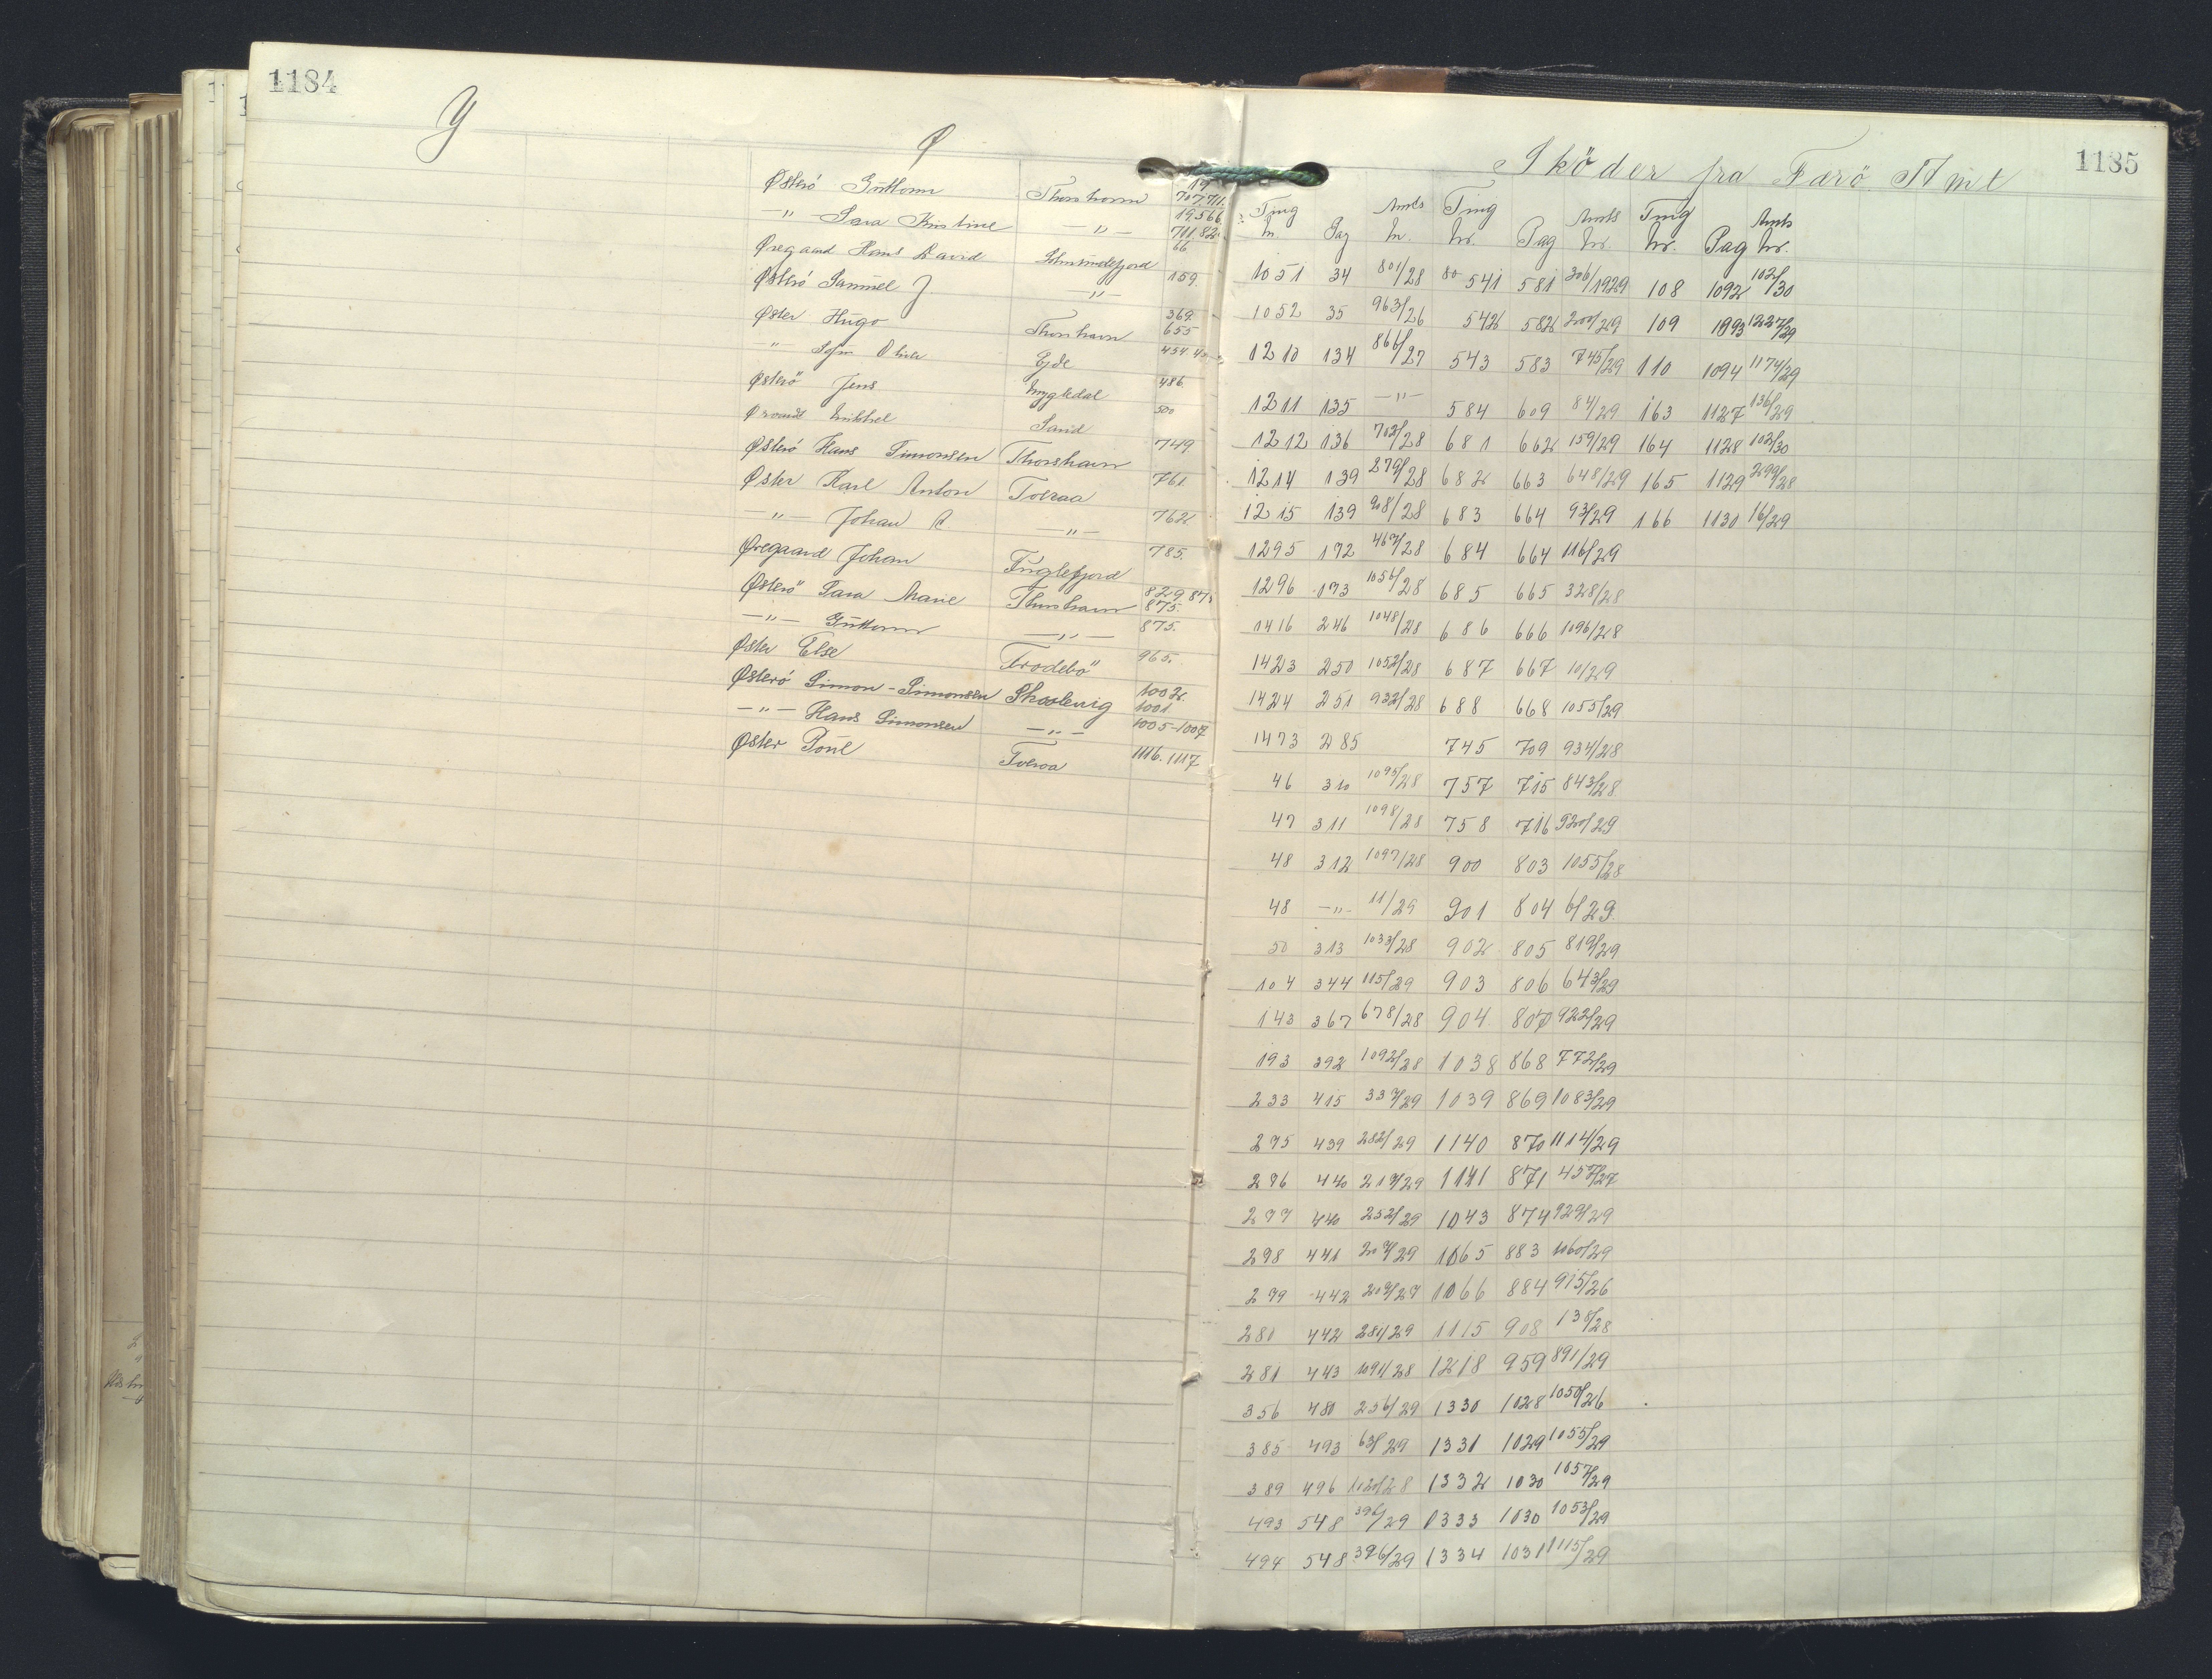 1184
Y
Ø
Østerö Guttorm Thorshavn 19 707.711.
—"— Sara Kristine —"— 19 566 701,82
Øregaard Hans David 66
Østerö Samuel J —"— 159.
Øster Hugo Thorshavn 369 655
—"— Ejde 454
Østerö Jens 486.
Sand 500
Østerö Hans Simonsen Thorshavn 749
Øster Karl Anton Tveraa 761.
—"— Johan —"— 762
Øregaard Johan Fuglefjord 785.
Østerö Sara Marie Thorshavn 829. 875.
—"— Guttorm —"— 875.
Øster Else Frodebö 965.
Østerö Simon-Simonsen Skaalevig 1002. 1001
—"— Hans Simonsen —"— 1005-1007
Øster Poul Tveraa 1116. 1117
1185
Sköder fra Færö Amt
Ting Amts Ting Amts Ting Amts
nr. Pag nr. nr. Pag nr. nr. Pag nr.
1051 34 801/28 80 541 581 306/1929 108 1092 102/30
1052 35 963/26 542 582 200/29 109 1093 1227/29
1210 134 866/27 543 583 745/29 110 1094 1174/29
1211 135 —"— 584 609 84/29 163 1127 136/29
1212 136 702/28 681 662 159/29 164 1128 102/30
1214 139 279/28 682 663 648/29 165 1129 299/28
1215 139 908/28 683 664 93/29 166 1130 16/29
1295 192 467/28 684 664 116/29
1296 193 1056/28 685 665 328/28
1416 246 1048/28 686 666 1096/28
1423 250 1052/28 687 667 10/29
1424 251 932/28 688 668 1055/29
1473 285 745 709 934/28
46 310 1095/28 757 715 843/28
47 311 1098/28 758 716 920/29
48 312 1097/28 900 803 1055/28
48 —"— 11/29 901 804 6/29
50 313 1033/28 902 805 819/29
104 344 115/29 903 806 643/29
143 367 678/28 904 807 922/29
193 392 1092/28 1038 868 772/29
233 415 337/29 1039 869 1083/29
275 439 282/29 1140 870 1114/29
276 440 217/29 1141 871 457/27
277 440 252/29 1043 874 929/29
298 441 207/29 1065 883 1060/29
279 442 207/29 1066 884 915/26
280 442 281/29 1115 908 138/28
281 443 1091/28 1218 959 891/29
356 480 236/29 1330 1028 1050/26
385 493 63/29 1331 1029 1055/29
389 496 1120/28 1332 1030 1057/29
493 548 396/29 1333 1030 1053/29
494 548 396/29 1334 1031 1115/29